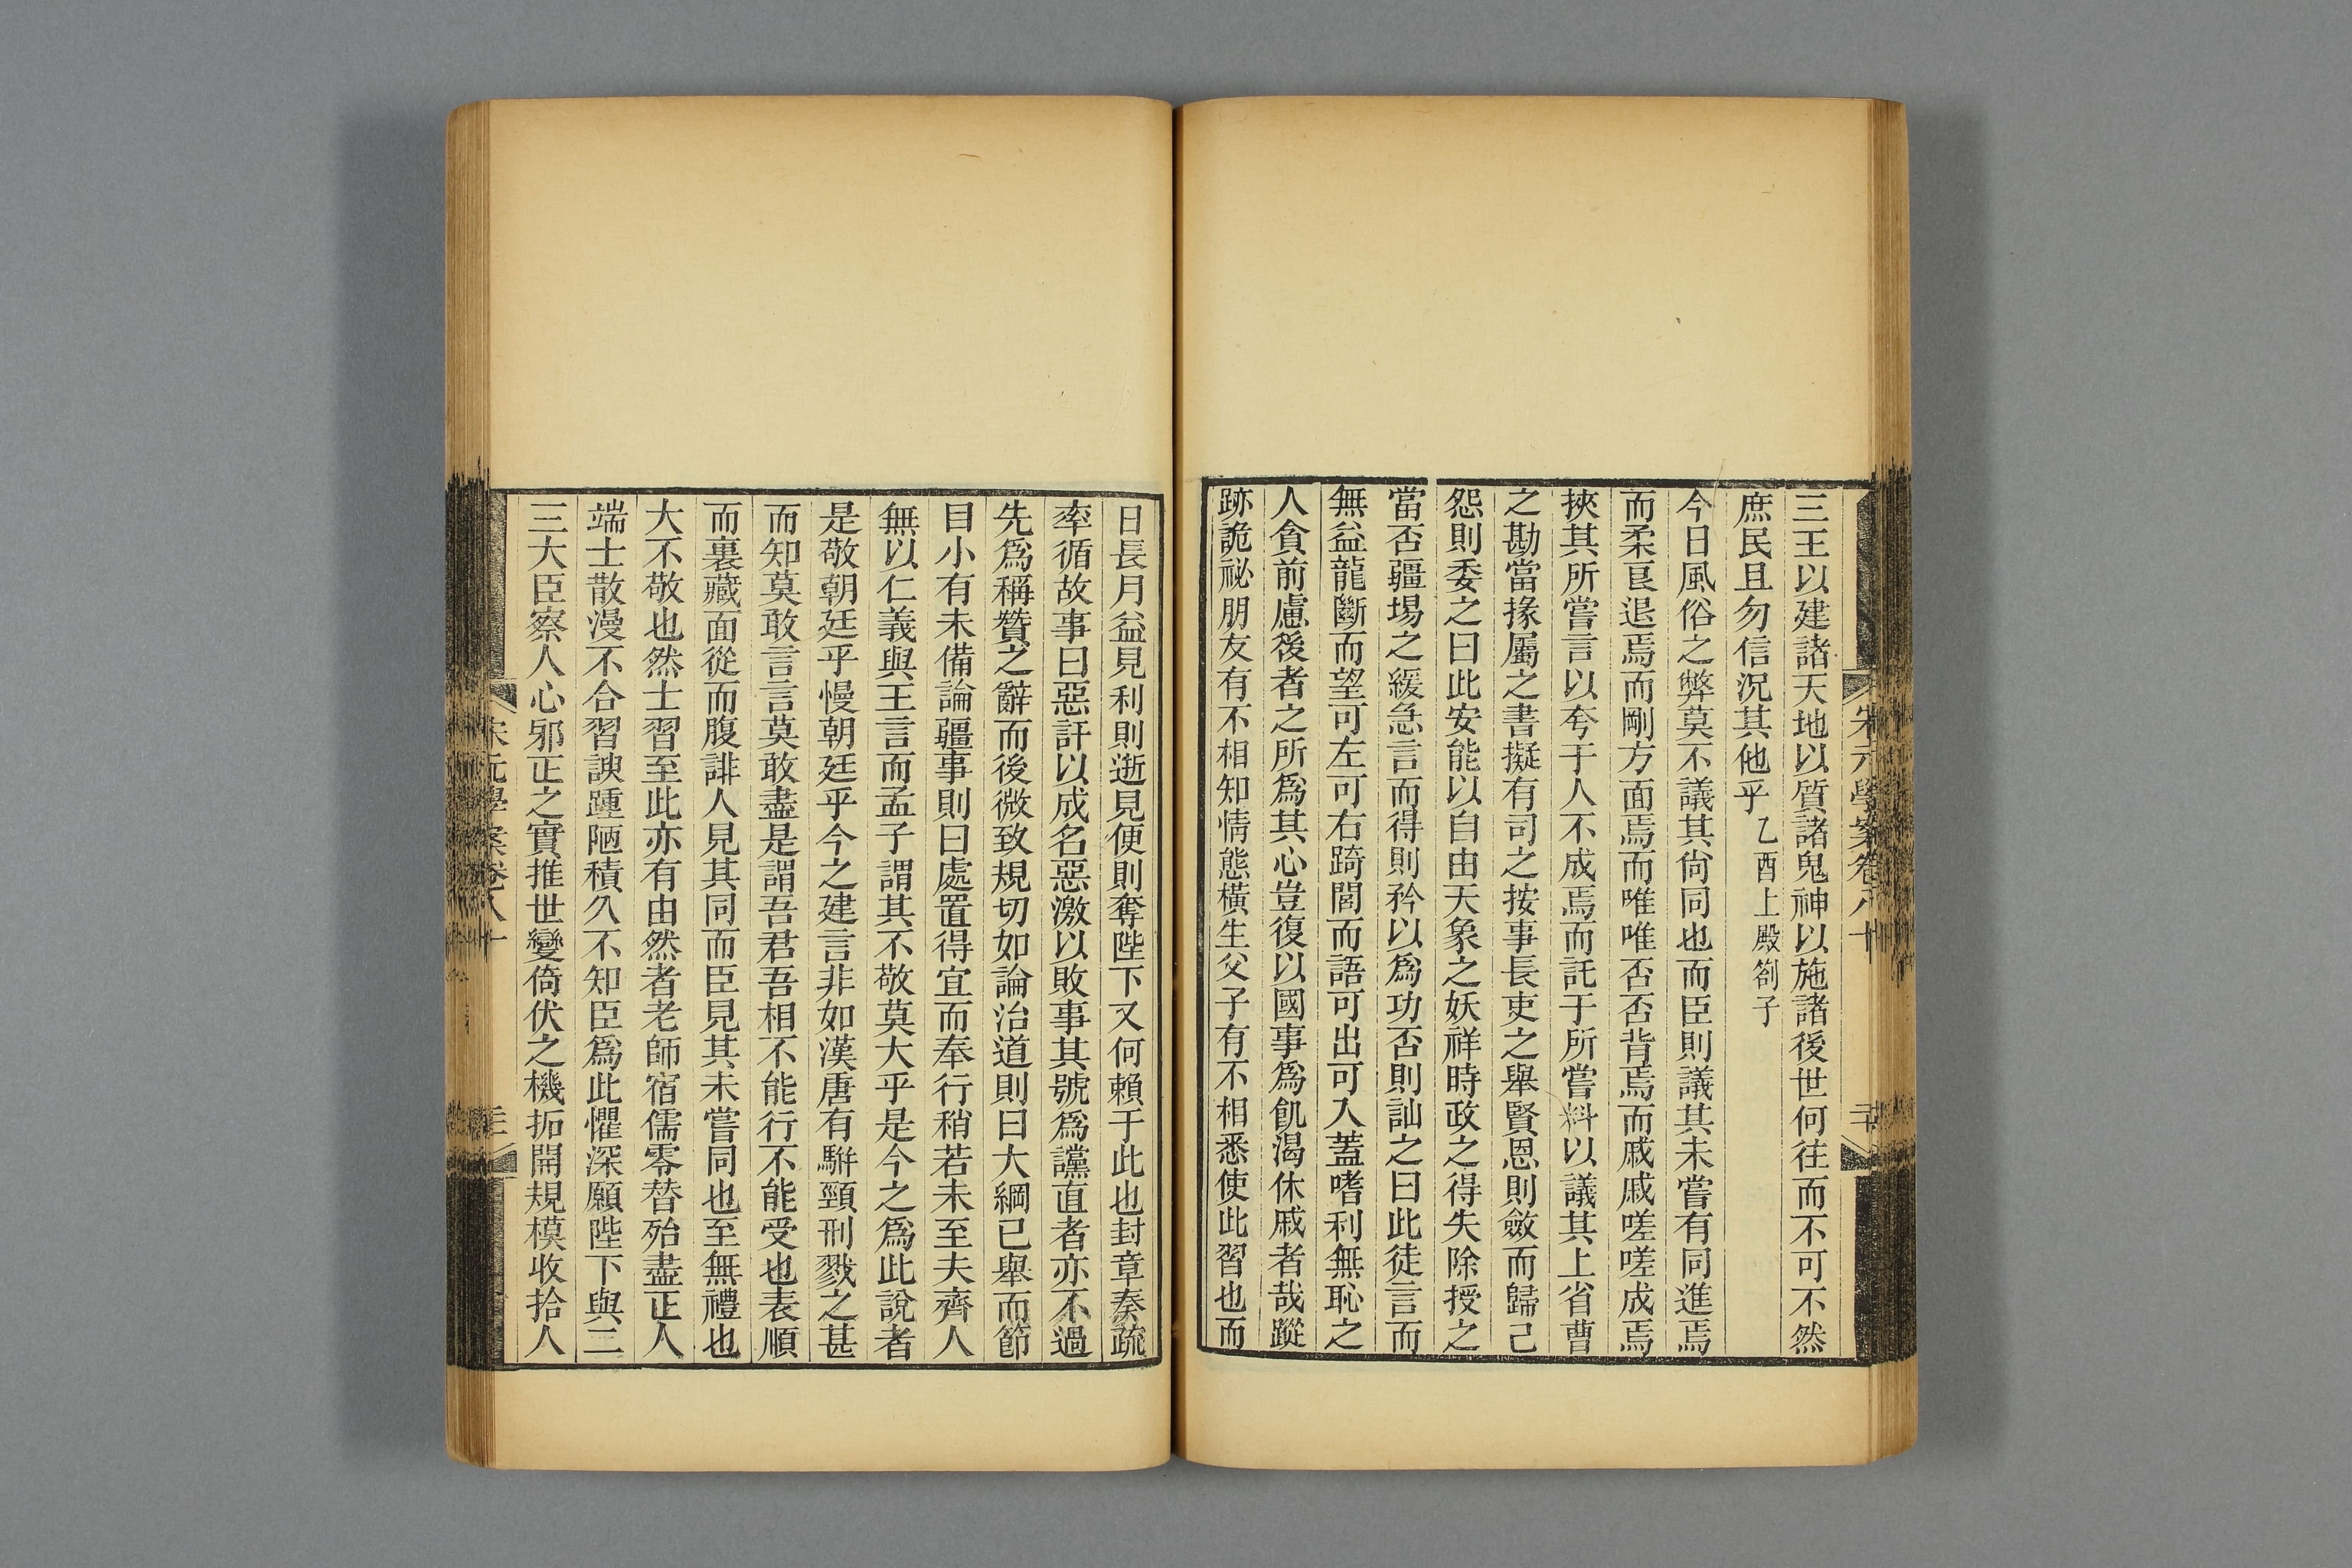 三王以建諸天地以質諸鬼神以施諸後世何往而不可不然
庶民且勿信況其他乎乙酉上殿劄子
今日風俗之弊莫不議其尙同也而臣則議其未嘗有同進焉
而柔良退焉而剛方面焉而唯唯否否背焉而戚戚嗟嗟成焉
挾其所嘗言以夸于人不成焉而託于所嘗料以議其上省曹
之勘當掾屬之書擬有司之按事長吏之舉賢恩則斂而歸己
怨則委之曰此安能以自由天象之妖祥時政之得失除授之
當否疆埸之緩急言而得則矜以爲功否則訕之曰此徒言而
無益龍斷而望可左可右踦閭而語可出可入蓋嗜利無恥之
人貪前慮後者之所爲其心豈復以國事爲飢渴休戚者哉蹤
跡詭祕朋友有不相知情態橫生父子有不相悉使此習也而
日長月益見利則逝見便則奪陛下又何賴于此也封章奏疏
率循故事曰惡訐以成名惡激以敗事其號爲讜直者亦不過
先爲稱贊之辭而後微致規切如論治道則曰大綱已舉而節
目小有未備論疆事則曰處置得宜而奉行稍若未至夫齊人
無以仁義與王言而孟子謂其不敬莫大乎是今之爲此說者
是敬朝廷乎慢朝廷乎今之建言非如漢唐有駢頸刑戮之甚
而知莫敢言言莫敢盡是謂吾君吾相不能行不能受也表順
而裏藏面從而腹誹人見其同而臣見其未嘗同也至無禮也
大不敬也然士習至此亦有由然者老師宿儒零替殆盡正人
端士散漫不合習諛踵陋積久不知臣爲此懼深願陛下與二
三大臣察人心邪正之實推世變倚伏之機拓開規模收拾人
宋元學案卷八十